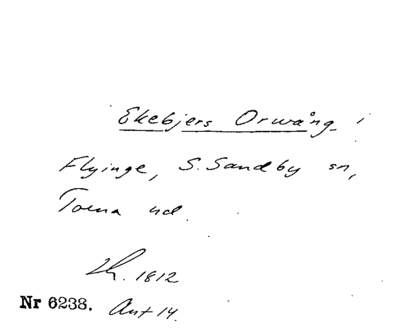 Ekebjers Orwång i
Flyinge, S. Sandby sn,
Torna hd.
Lk. 1812
Nr 6238. Ant 14.